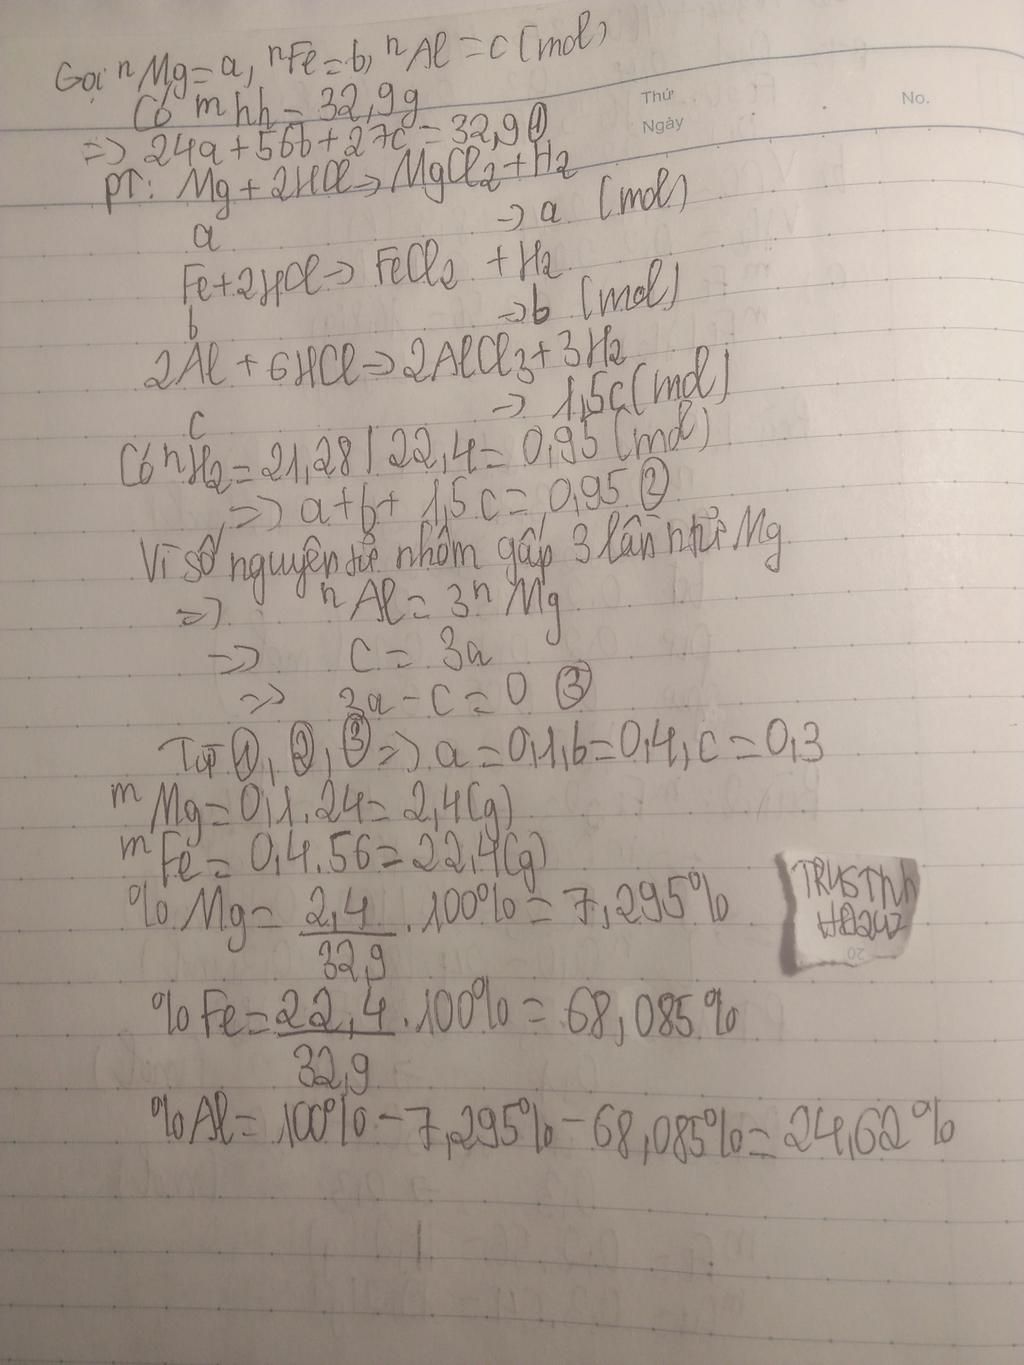 Gọi nMg=a, nFe=b, nAl=c(mol)
Thứ
No.
Ngày
Có mhh=32,9g
=> 24a+56b+27c=32,9①
PT: Mg+2HCl→MgCl2+H2
a → a (mol)
Fe+2HCl→FeCl2 +H2
b → b (mol)
2Al+6HCl→2AlCl3+3H2
c → 1,5c(mol)
Có nH2=21,28/22,4=0,95(mol)
=> a+b+1,5c=0,95②
Vì số nguyên tử nhôm gấp 3 lần ntử Mg
=> nAl=3nMg
=> c=3a
=> 3a-c=0 ③
Từ ①,②,③=> a=0,1,b=0,4,c=0,3
mMg=0,1.24=2,4(g)
mFe=0,4.56=22,4(g)
%Mg=2,4/32,9.100%=7,295%
TRUSTnh
HĐ247
20
%Fe=22,4/32,9.100%=68,085%
%Al=100%-7,295%-68,085%=24,62%